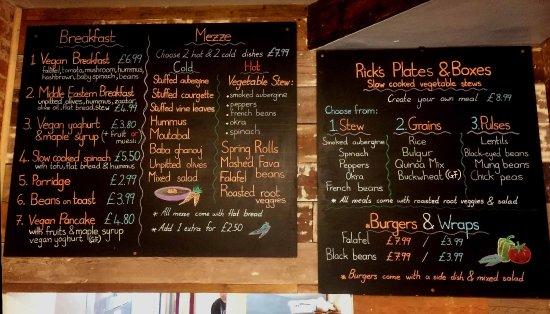 Breakfast
1. Vegan Breakfast £6.99
falafel, tomato, mushroom, hummus,
hashbrown, baby spinach, beans
2. Middle Eastern Breakfast
unpitted olives, hummus, zaatar,
olive oil, flat bread, stew £4.99
3. Vegan yoghurt £3.80
& maple syrup (+ fruit or muesli)
4. Slow cooked spinach £5.50
with tofu, flat bread & hummus
5. Porridge £2.99
6. Beans on toast £3.99
7. Vegan Pancake £4.80
with fruits & maple syrup
vegan yoghurt (GF)
Mezze
Choose 2 hot & 2 cold dishes £7.99
Cold
Stuffed aubergine
Stuffed courgette
Stuffed vine leaves
Hummus
Moutabal
Baba ghanouj
Unpitted olives
Mixed salad
Hot
Vegetable Stew:
• smoked aubergine
• peppers
• french beans
• okra
• spinach
Spring Rolls
Mashed Fava beans
Falafel
Roasted root veggies
* All mezze come with flat bread
* Add 1 extra for £2.50
Rick's Plates & Boxes
Slow cooked vegetable stews
Create your own meal £8.99
Choose from:
1. Stew
Smoked aubergine
Spinach
Peppers
Okra
French beans
2. Grains
Rice
Bulgur
Quinoa Mix
Buckwheat (GF)
3. Pulses
Lentils
Black-eyed beans
Mung beans
Chick peas
* All meals come with roasted root veggies & salad
Burgers & Wraps
Falafel £7.99 / £3.99
Black beans £7.99 / £3.99
* Burgers come with a side dish & mixed salad